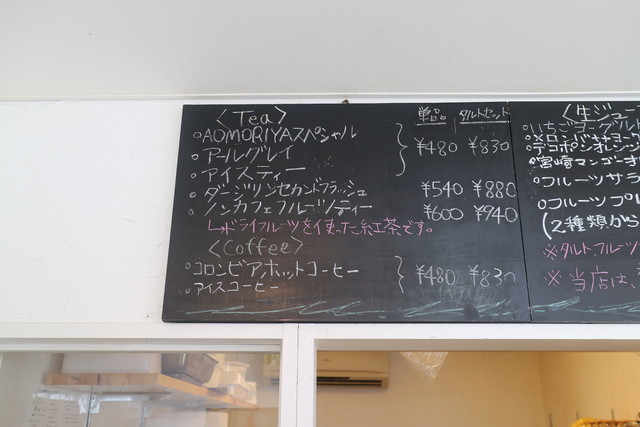 〈Tea〉 単品 タルトセット
○AOMORIYAスペシャル
○アールグレイ ¥480 ¥830
○アイスティー
○ダージリンセカンドフラッシュ ¥540 ¥880
○ノンカフェフルーツティー ¥600 ¥940
↳ドライフルーツを使った紅茶です。
〈Coffee〉
○コロンビアホットコーヒー ¥480 ¥830
○アイスコーヒー
〈生ジュー
○いちごヨーグルト
○デコポンオレンジ
○宮崎マンゴーオ
○フルーツサラ
○フルーツプレ
(2種類から
※タルト、フルーツ
※当店は、